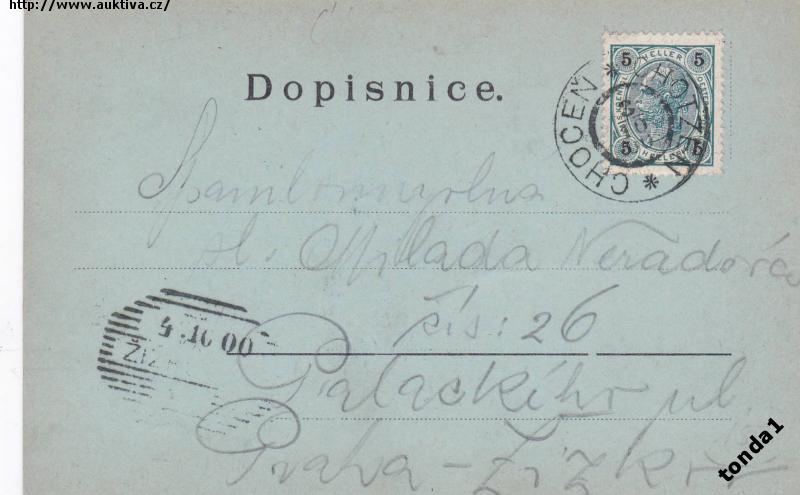 http://www.auktiva.cz/
Dopisnice.
5 HELLER 5
5 5
CHOCEŇ * CHOTZEN *
sl. Milada Neradová
čís: 26
4.10 00
ŽIŽ
Palackého ul.
Praha – Žižkov
tonda1